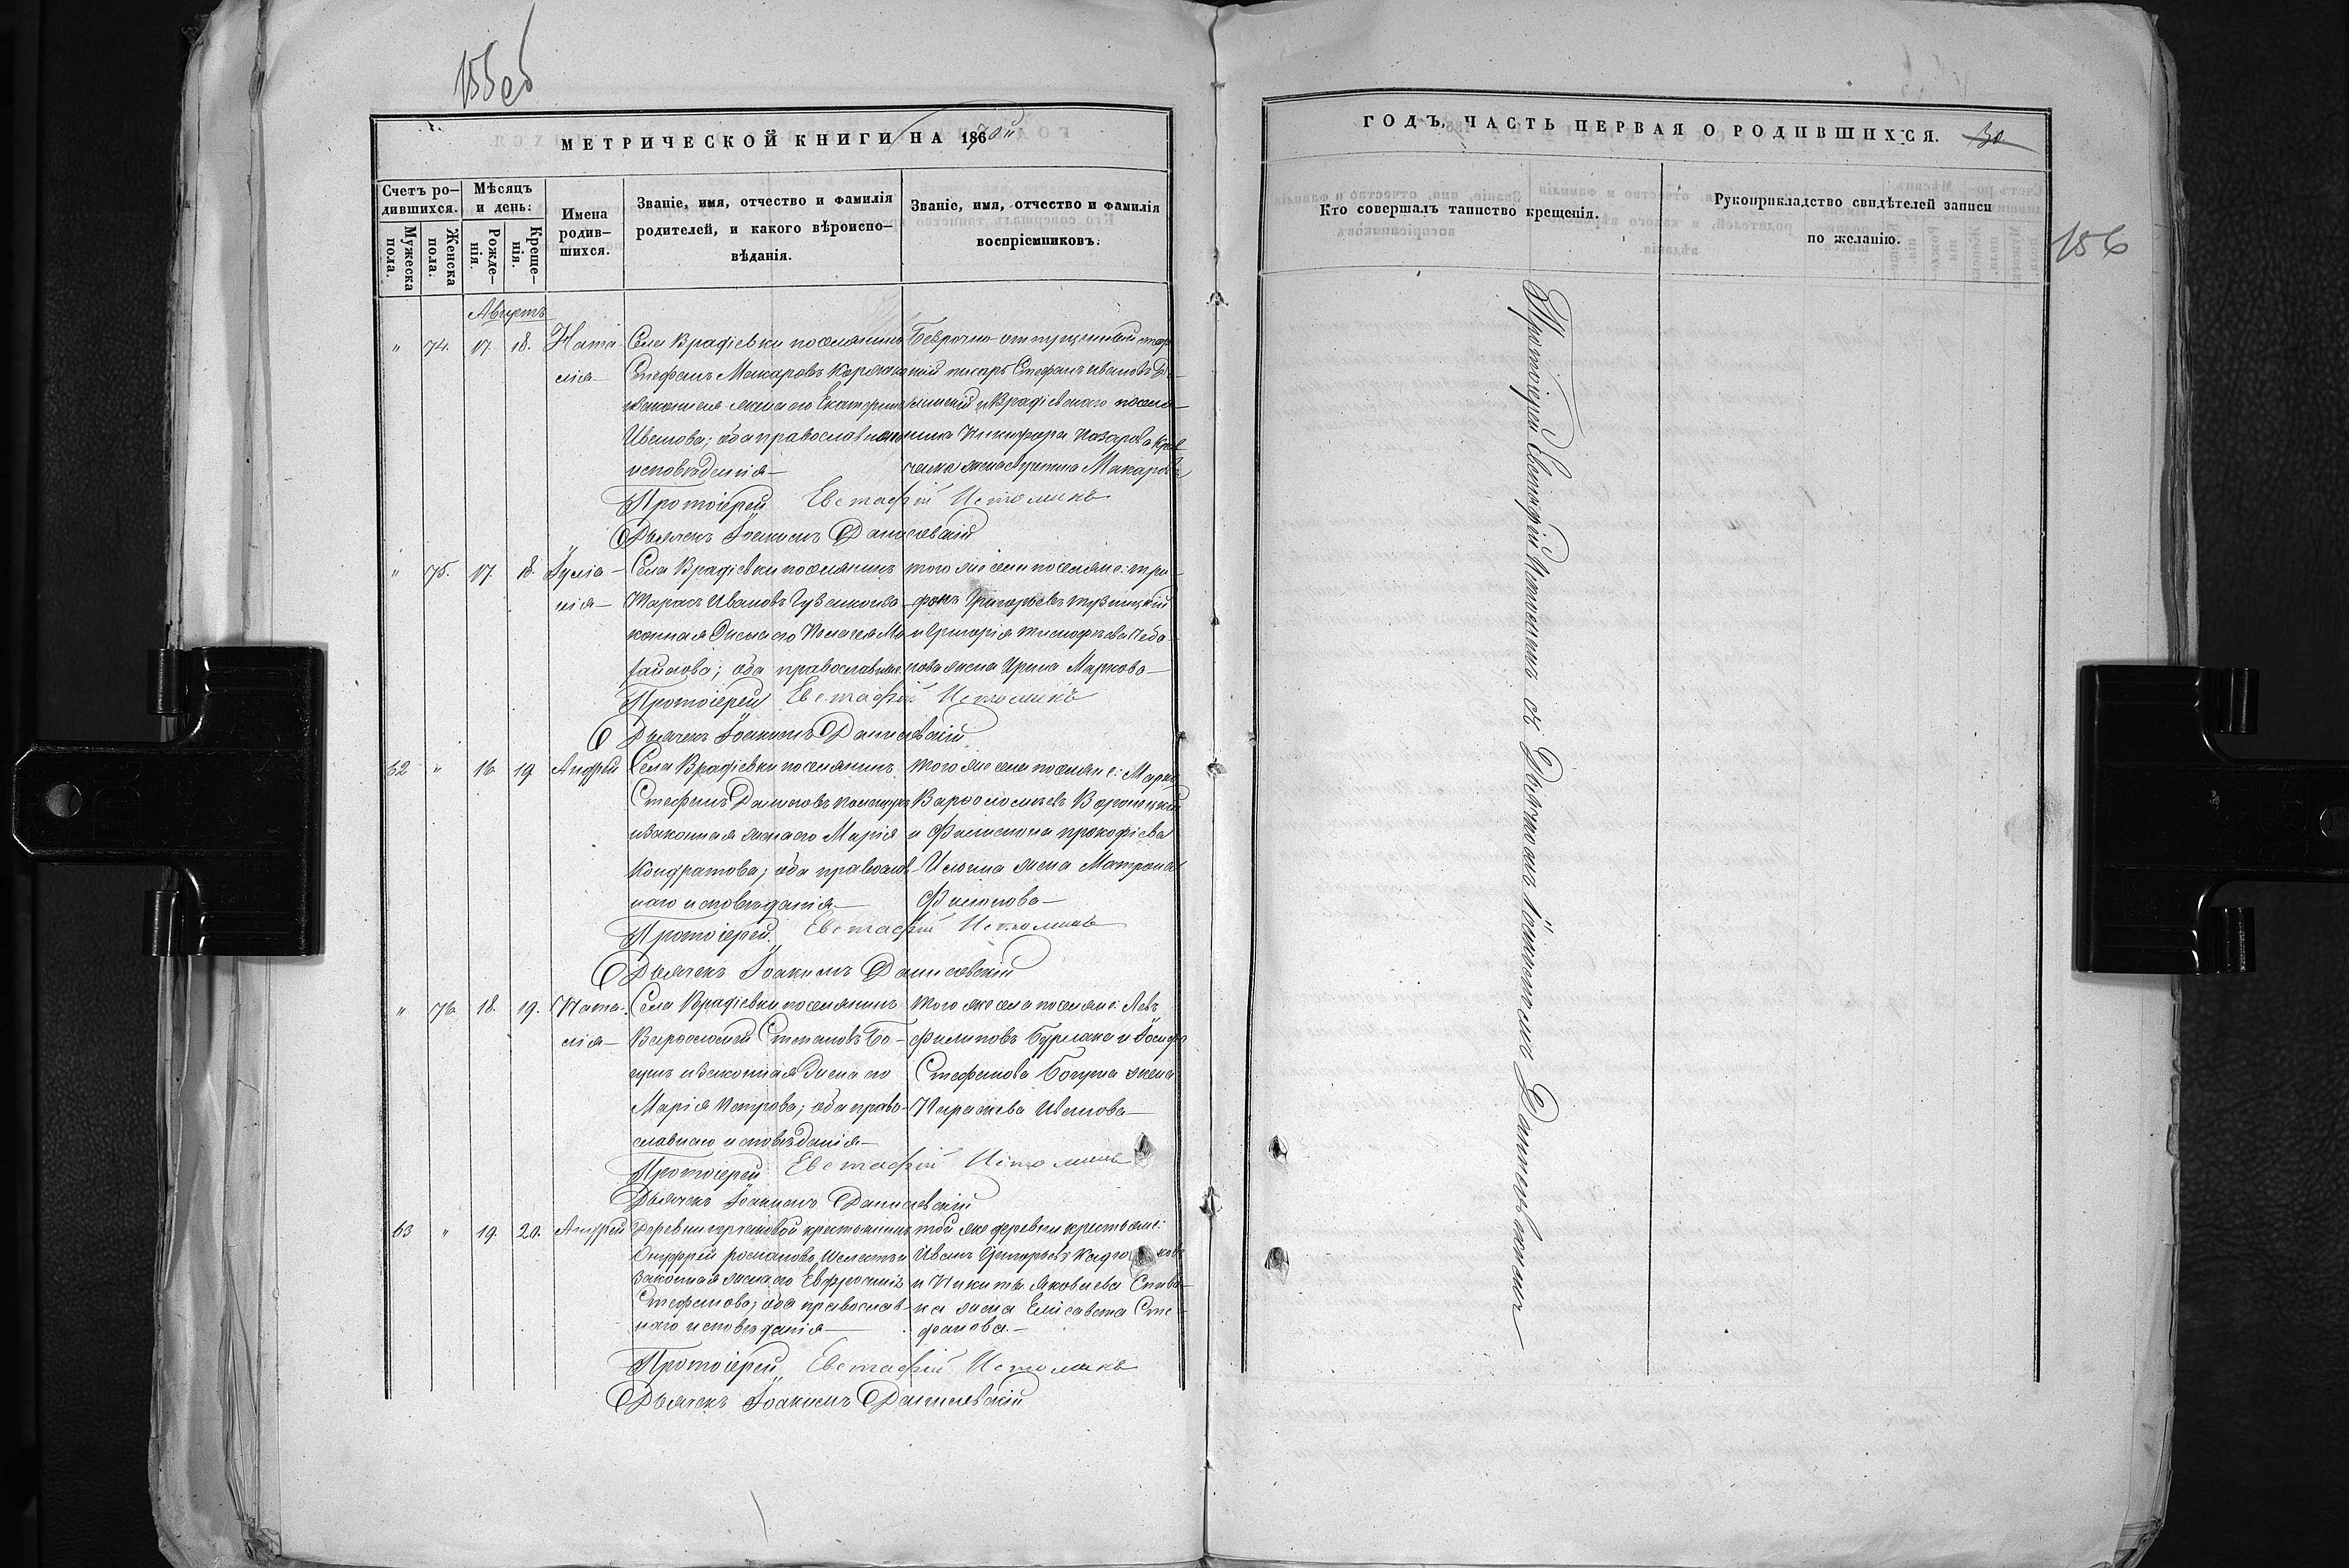 155об
МЕТРИЧЕСКОЙ КНИГИ НА 1870й
Счетъ родившихся.
Мужеска пола.
Женска пола.
Мѣсяцъ и день:
Рожденія.
Крещенія.
Имена родившихся.
Званіе, имя, отчество и фамилія родителей, и какого вѣроисповѣданія.
Званіе, имя, отчество и фамилія воспріемниковъ.
Августъ
" 74. 17. 18. Ната-
лія
Села Врадіевки поселянинъ
Стефанъ Макаровъ
законная жена его Екатерина
Иванова; оба православнаго
исповѣданія
Безсрочно-отпущенный
писарь Стефанъ Ивановъ
и Врадіевскаго поселя-
нина Никифора Назарова
жена Макарова
Протоіерей Евстафій Истоминъ
Дьячекъ Іоакимъ Данилевскій
" 75. 17. 18. Іулія-
нія
Села Врадіевки поселянинъ
Тарасъ Ивановъ
конная жена его Пелагея Ми-
хайлова; оба православнаго
того же села поселяне: Три-
фонъ Григорьевъ
и Григорія Тимофѣева Чебо-
жена Ирина Маркова
Протоіерей Евстафій Истоминъ
Дьячекъ Іоакимъ Данилевскій
62 " 16 19 Андрей
Села Врадіевки поселянинъ
Стефанъ Даниловъ
и законная жена его Марія
Кондратова; оба православ-
наго исповѣданія
того же села поселяне: Марко
Варфоломѣевъ
и Филимона Прокофіева
жена Матрона
Филипова
Протоіерей Евстафій Истоминъ
Дьячекъ Іоакимъ Данилевскій
" 76. 18. 19. Ната-
лія
Села Врадіевки поселянинъ
Варфоломей Степановъ Бо-
гунъ и законная жена его
Марія Петрова; оба право-
славнаго исповѣданія
того же села поселяне: Левъ
Филиповъ Бурлака и Іосифа
Стефанова Богуна жена
Параскева Иванова
Протоіерей Евстафій Истоминъ
Дьячекъ Іоакимъ Данилевскій
63 " 19. 20. Андрей
Деревни крестьянинъ
Онуфрій Романовъ
законная жена его Евфросинія
Стефанова; оба православ-
наго исповѣданія
той же деревни крестьяне:
Иванъ Григорьевъ
и Никиты Яковлева
жена Елисавета Сте-
фанова.
Протоіерей Евстафій Истоминъ
Дьячекъ Іоакимъ Данилевскій
ГОДЪ, ЧАСТЬ ПЕРВАЯ О РОДИВШИХСЯ. 30.
Кто совершалъ таинство крещенія.
Рукоприкладство свидѣтелей записи по желанію.
156
Протоіерей Евстафій Истоминъ съ Дьячкомъ Іоакимомъ Данилевскимъ